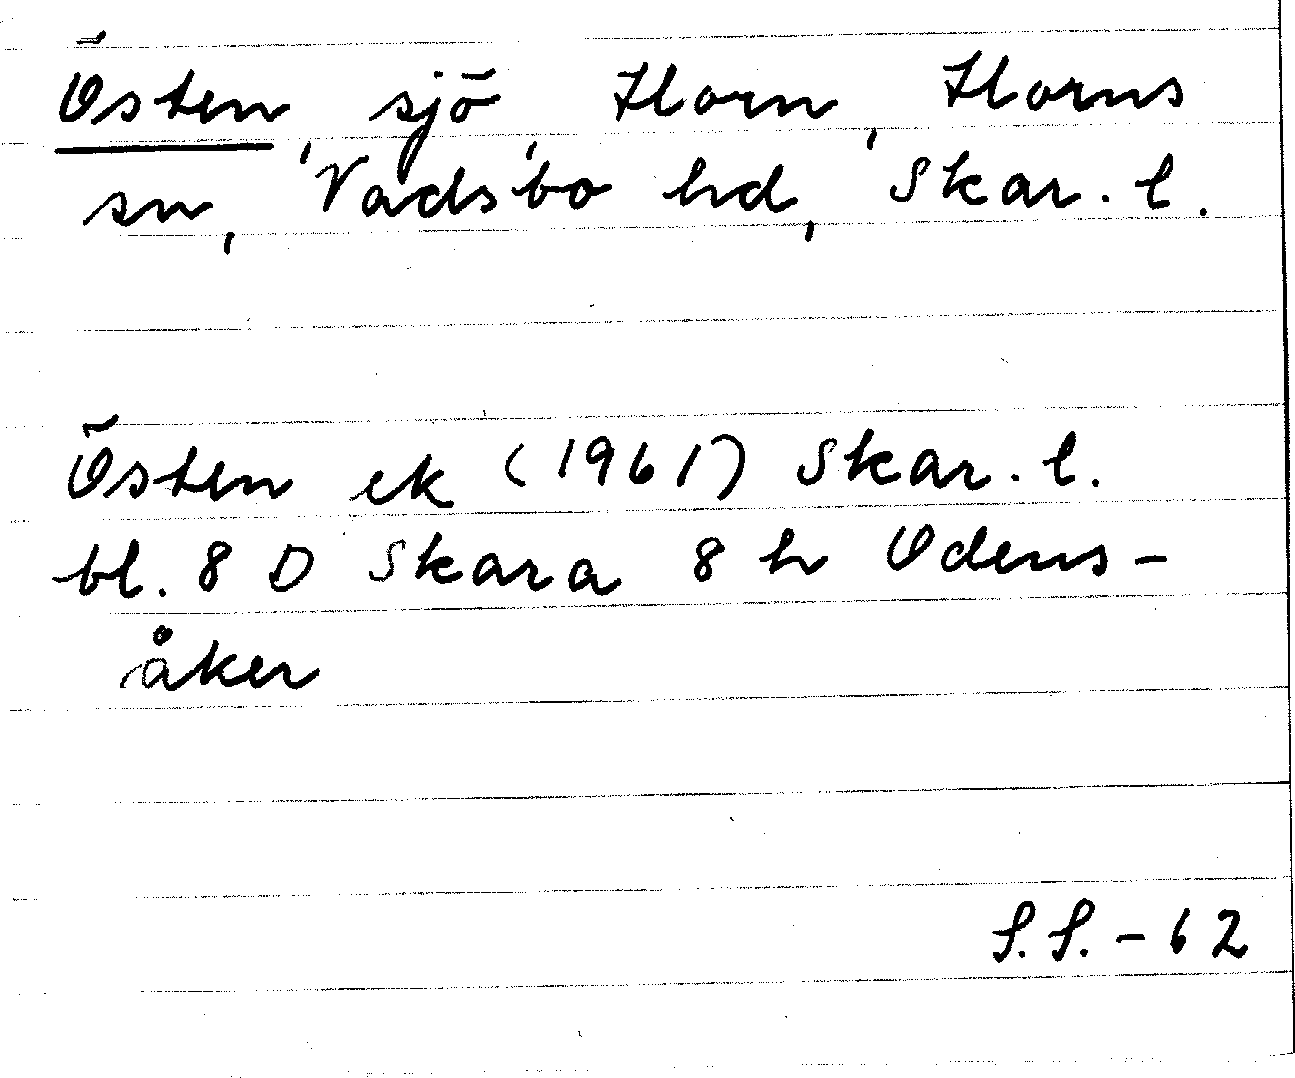 Östen, sjö, Horn, Horns
sn, Vadsbo hd, Skar. l.
Östen ek (1961) Skar. l.
bl. 8 D Skara 8 h Odens-
åker
S.S. - 62